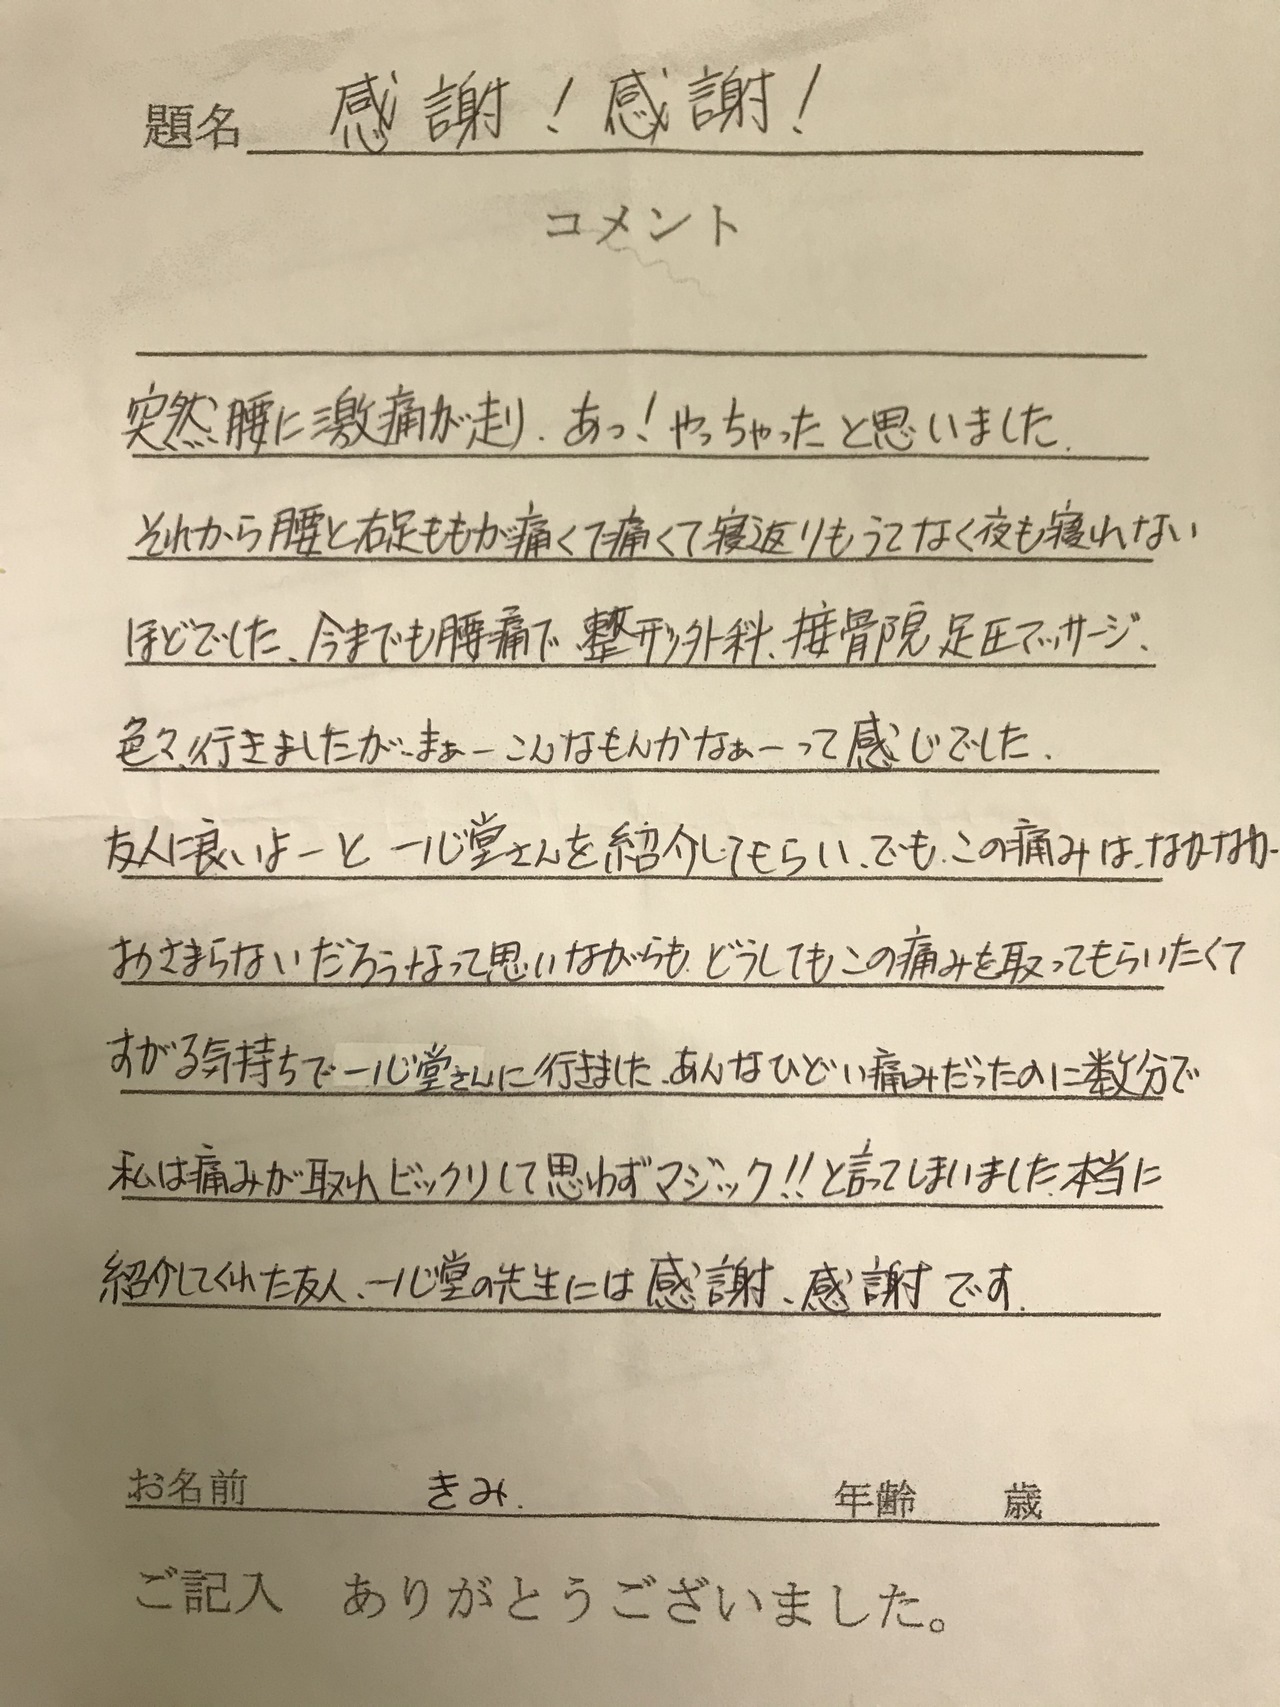 題名 感謝！感謝！
コメント
突然、腰に激痛が走り、あっ！やっちゃったと思いました。
それから腰と右足ももが痛くて痛くて寝返りもうてなく夜も寝れない
ほどでした、今までも腰痛で、整形外科、接骨院、足圧マッサージ、
色々、行きましたが、まぁーこんなもんかなぁーって感じでした。
友人に良いよーと 一心堂さんを紹介してもらい、でも、この痛みは、なかなか
おさまらないだろうなって思いながらも、どうしてもこの痛みを取ってもらいたくて
すがる気持ちで一心堂さんに行きました、あんなひどい痛みだったのに数分で
私は痛みが取れビックリして思わずマジック！！と言ってしまいました、本当に
紹介してくれた友人、一心堂の先生には感謝、感謝です。
お名前 きみ. 年齢 歳
ご記入 ありがとうございました。